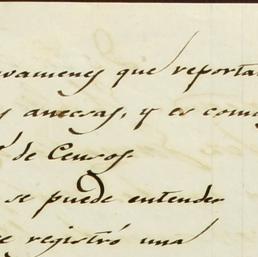 avamenes que reporta
s anecsas, y es como
de Censos.
se puede entender
e registró una